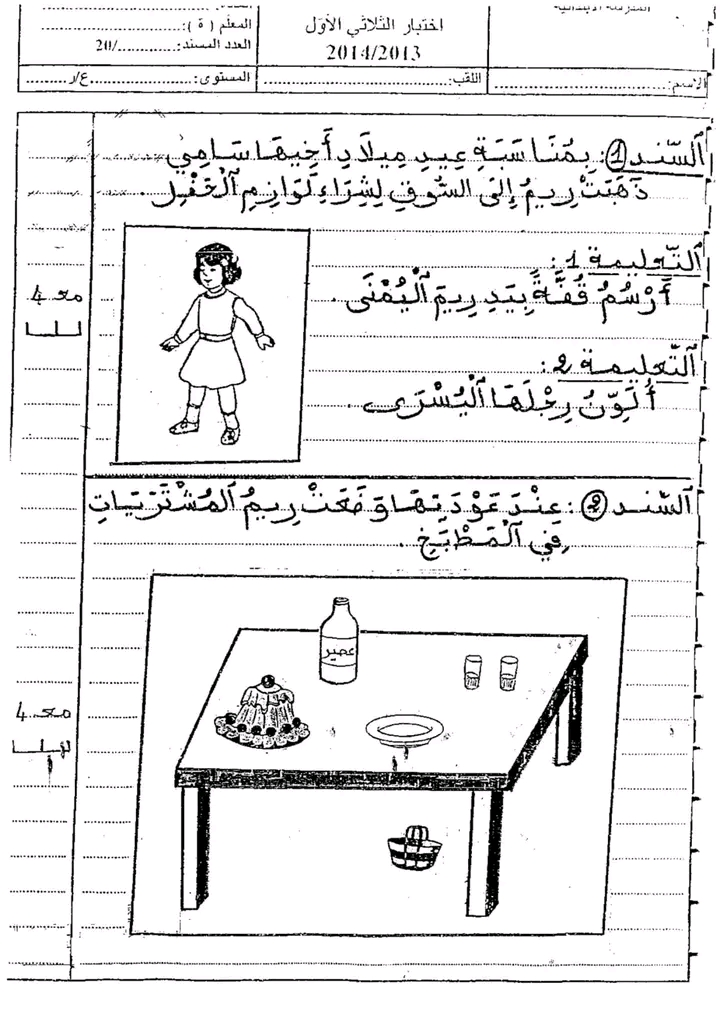 المدرسة الابتدائية
اختبار الثلاثي الأوّل
2014/2013
المعلّم ( ة ):
العدد المسند: /20
الاسم:
اللقب:
المستوى: ع/ر
اَلسَّنــد ①: بِمُنَاسَبَةِ عِيدِ مِيلَادِ أَخِيهَا سَامِي
ذَهَبَتْ رِيمُ إِلَى السُّوقِ لِشِرَاءِ لَوَازِمِ اَلْحَفْلِ .
اَلتَّعليمة 1 :
أَرْسُمُ قُفَّةً بِيَدِ رِيمَ اَلْيُمْنَى .
اَلتَّعليمة 2 :
أُلَوِّنُ رِجْلَهَا اَلْيُسْرَى .
معـ 4
اَلسَّنــد ②: عِنْدَ عَوْدَتِهَا وَضَعَتْ رِيمُ اَلْمُشْتَرَيَاتِ
فِي اَلْمَطْبَخِ .
عصير
معـ 4